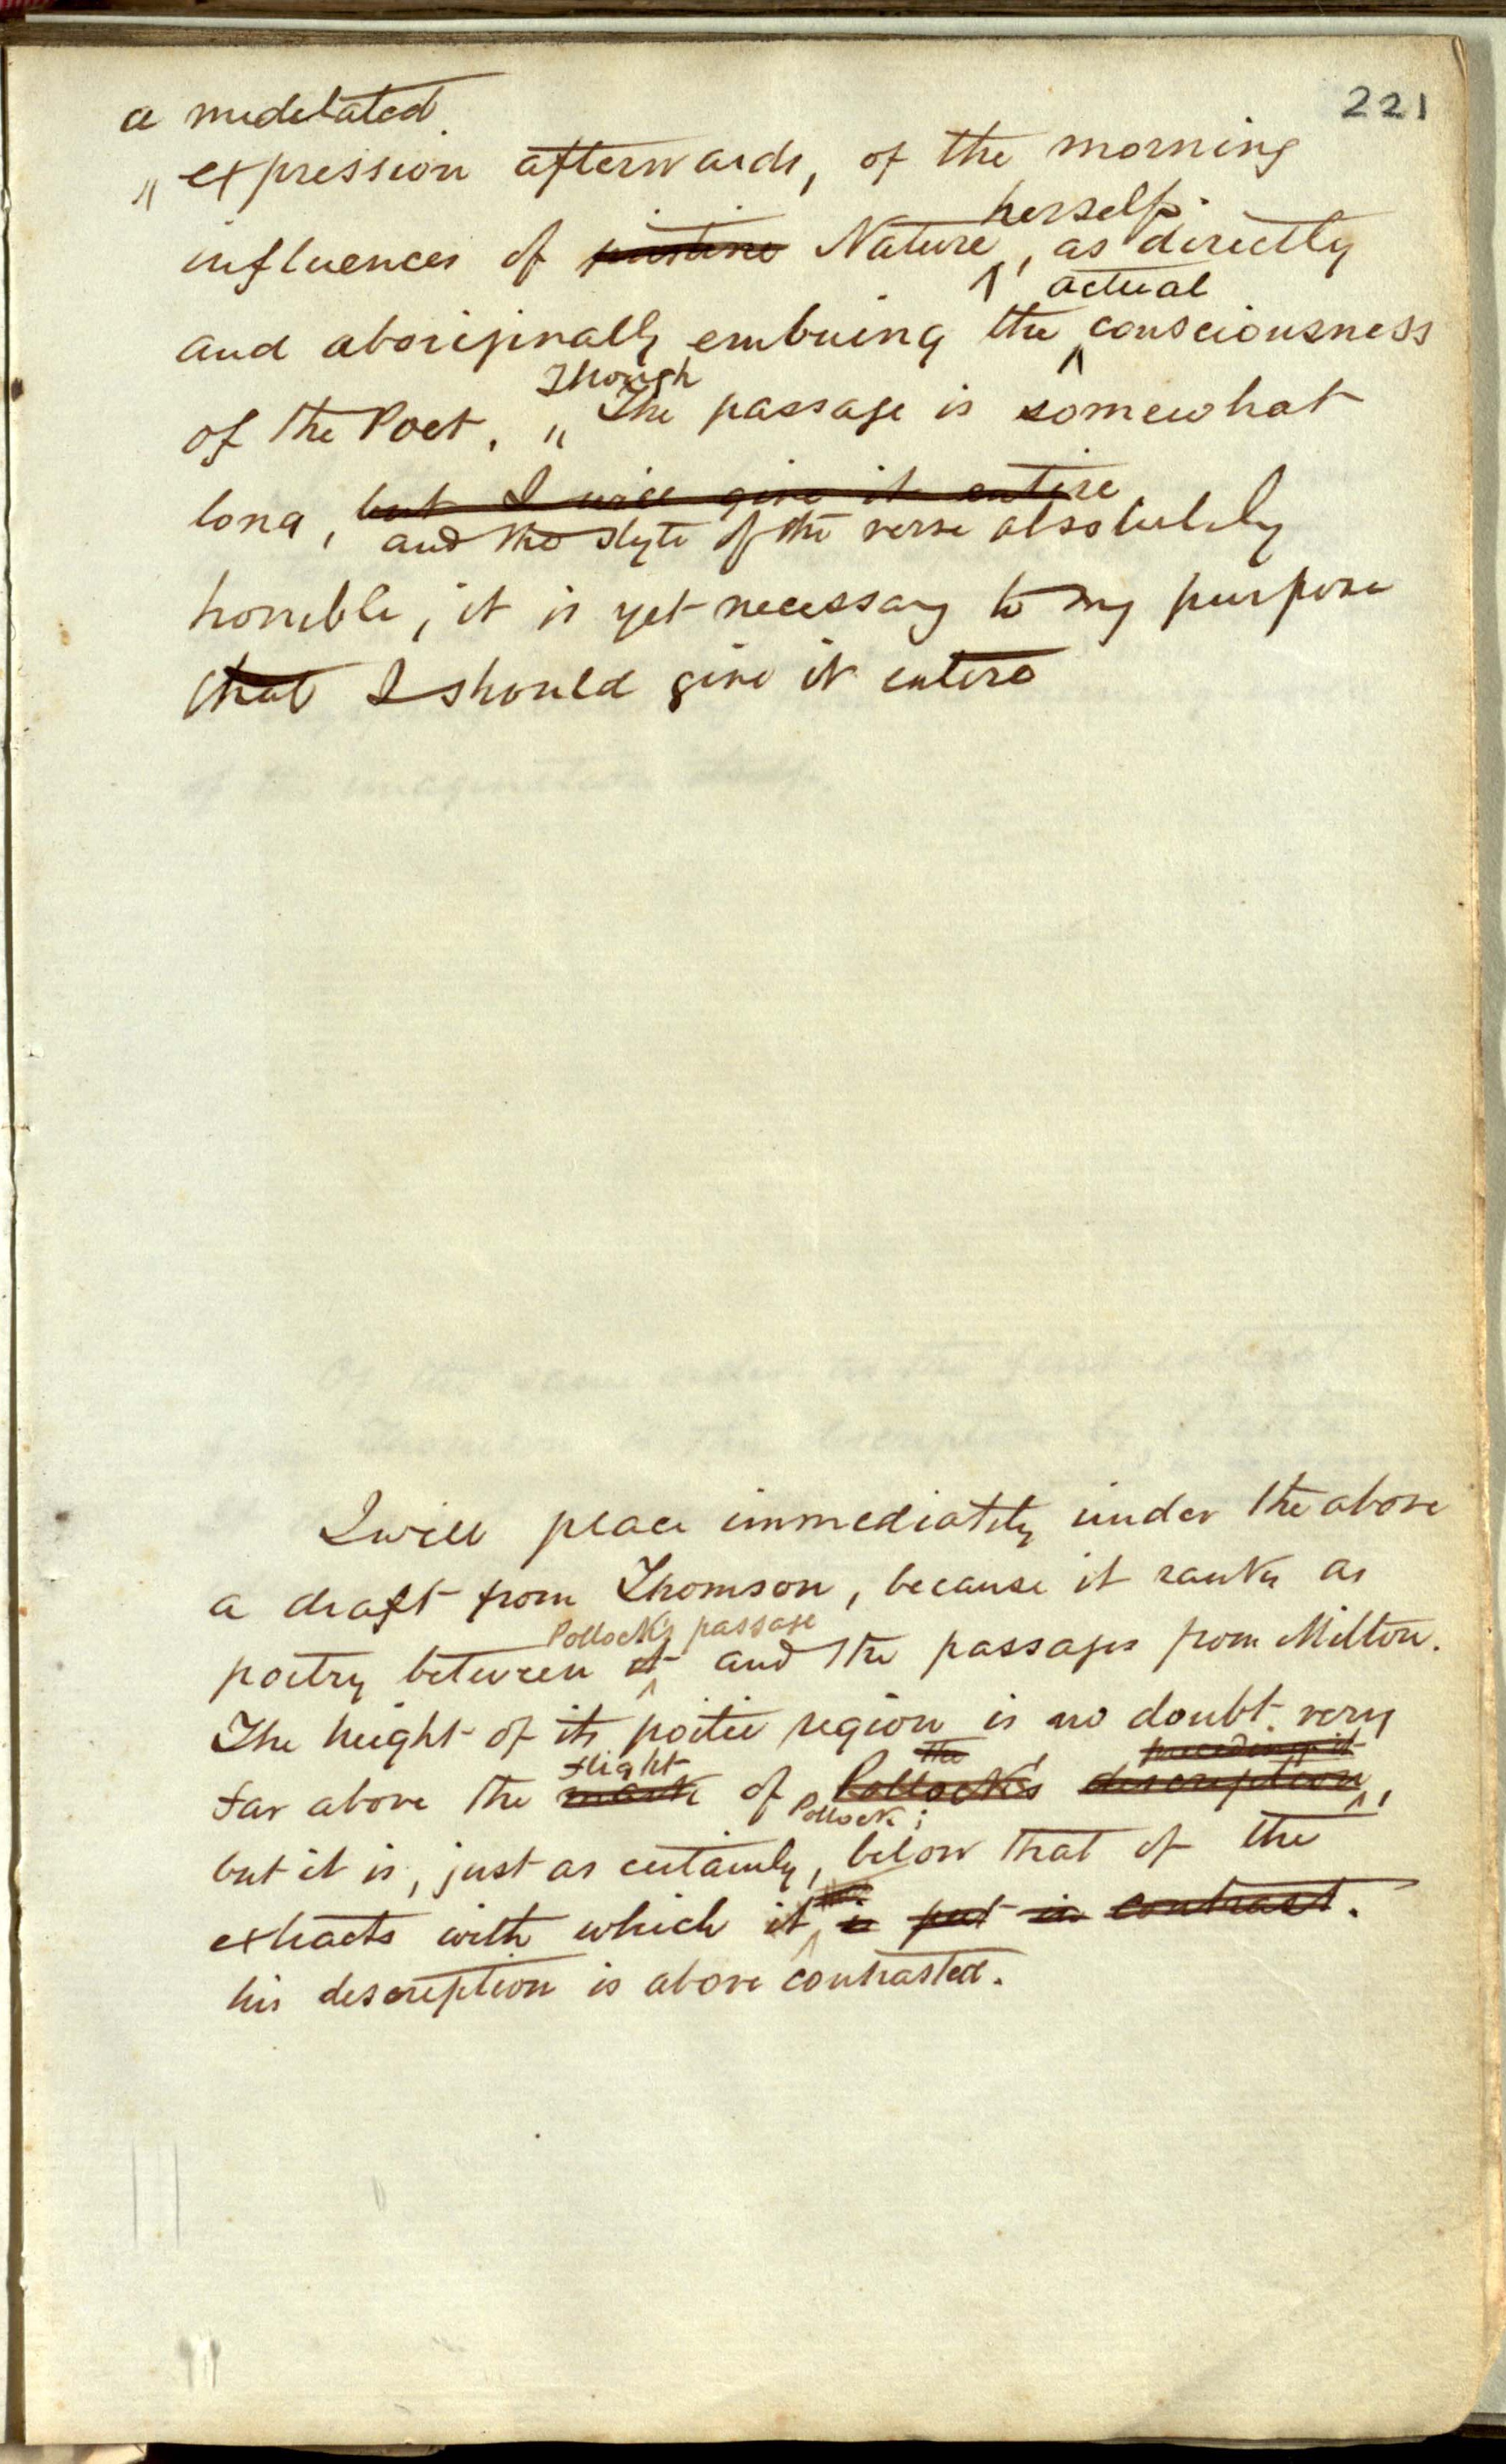 221
a medelated
expression afterwards, of the morning
herself
influences of pristine Nature, as directly
actual
and aboriginally embuing the consciousness
Though
of the Poet. The passage is somewhat
long, but I will give it entire
and the style of the verse absolutely
horrible, it is yet necessary to my purpose
that I should give it entire
I will place immediately under the above
a draft from Thomson, because it ranks as
Pollock's passage
poetry between it and the passages from Milton.
The height of its poetic region is no doubt very
flight the preceding it
far above the mark of Pollock's description,
Pollock;
but it is, just as certainly, below that of the
extracts with which it is put in contrast.
his description is above contrasted.